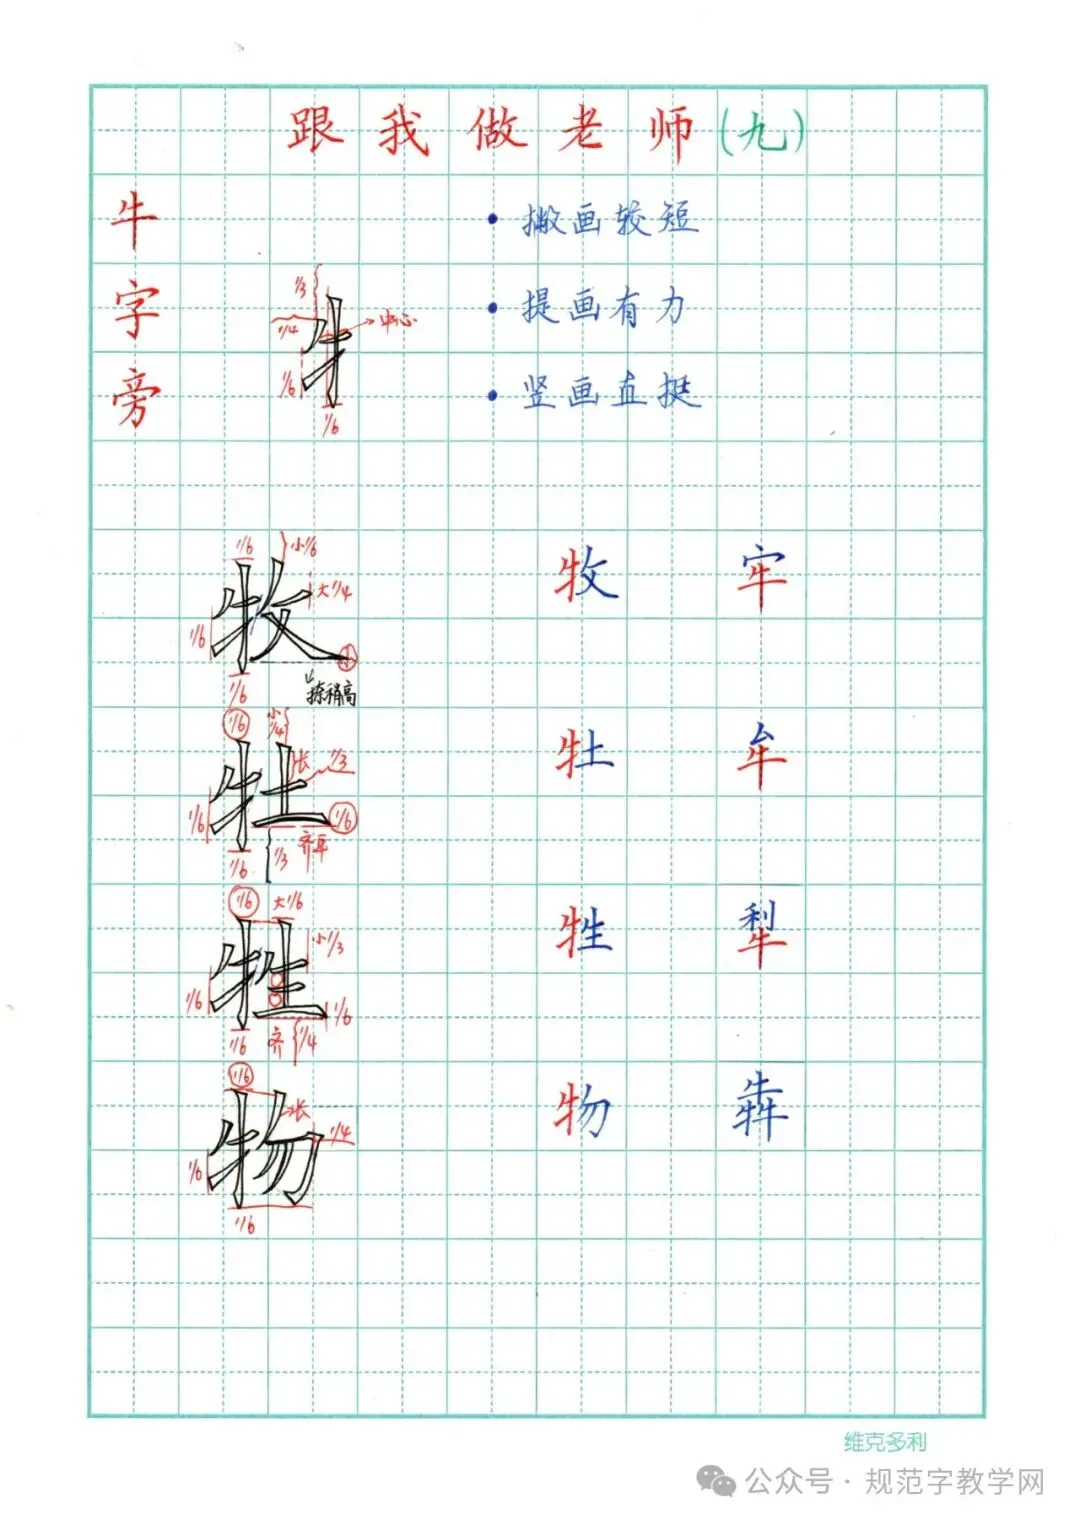 跟我做老师(九)
牛字旁
• 撇画较短
• 提画有力
• 竖画直挺
1/3
1/4
中心
1/6
1/6
1/6 小1/6
大1/4
牧 牧 牢
1/6
小
1/6 捺稍高
1/6 小1/4
长 1/3
牡 牡 牟
1/6 1/6
齐平
1/6 1/3
1/6 大1/6
小1/3
牲 牲 犁
1/6 1/6
1/6 齐 1/4
1/6
长
1/4
物 物 犇
1/6
1/6
维克多利
公众号·规范字教学网